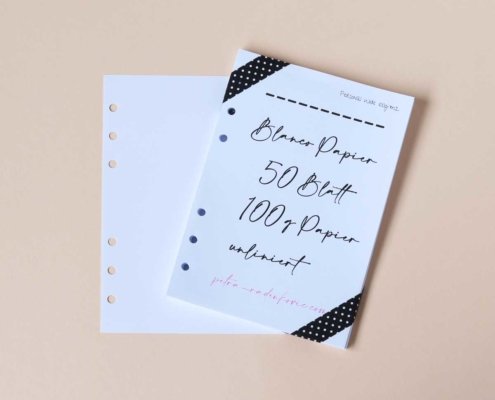 Blanco Papier
50 Blatt
100g Papier
unliniert